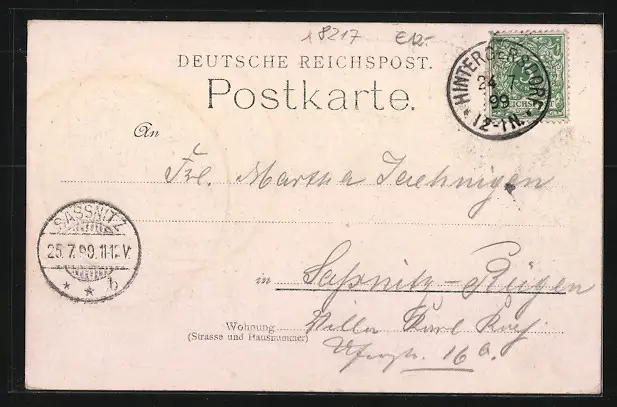 18217 €12-
DEUTSCHE REICHSPOST.
Postkarte.
HINTERGERSDORF
24 7 99
12-1N.
An
Frl. Martha Jaehnigen
SASSNITZ
25.7.99.11-12V.
* * b
in Saßnitz-Rügen
Wohnung Villa Karl
(Strasse und Hausnummer)
Uferstr. 16a.